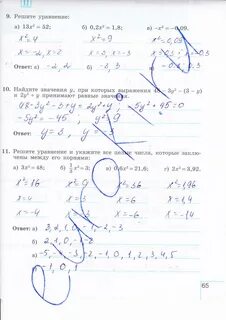 9. Решите уравнение:
а) 13x² = 52; б) 0,2x² = 1,8; в) -x² = -0,09.
x² = 4 x² = 9 x² = 0,09
x = -2, x = 2 x = 3, x = -3
Ответ: а) -2, 2 б) -3, 3 в) -0,3 0,3
10. Найдите значения y, при которых выражения 48 - 3y² - (3 - y)
и 2y² + y принимают равные значения.
48 - 3y² - 3 + y = 2y² + y -5y² + 45 = 0
-5y² = -45 y² = 9
Ответ: y = 3, y = -3
11. Решите уравнение и укажите все целые числа, которые заклю-
чены между его корнями:
x² = 16 x² = 9 x² = 36 x² = 1,96
x = 4 x = 3 x = 6 x = 1,4
x = -4 x = -3 x = -6 x = -1,4
Ответ: а) 3, 2, 1, 0, -1, -2, -3
б) 2, 1, 0, -1, -2
в) -5, -4, -3, -2, -1, 0, 1, 2, 3, 4, 5
-1, 0, 1
65